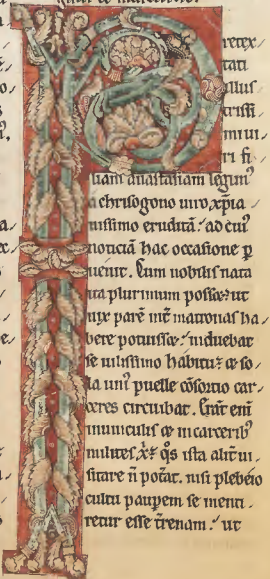 P
retex
tati
illustrissi
mi ui
ri fi
liam anastasiam legimꝰ
a chrisogono uiro xp̄ia
nissimo eruditā. ad cuiꝰ
noticiā hac occasione p
uenit. Cum nobilis nata
ita plurimum posset ut
uix parē int̄ matronas ha
bere potuisset. induebat
se uilissimo habitu. & so
la uniꝰ puelle cōsortio car
ceres circuibat. Erāt eni
in uinculis & in carceribꝰ
milites x̄i q̄s ista alit̄ ui
sitare n̄ potāt. nisi plebeio
cultu paupem se menti
retur esse t̄renam. ut